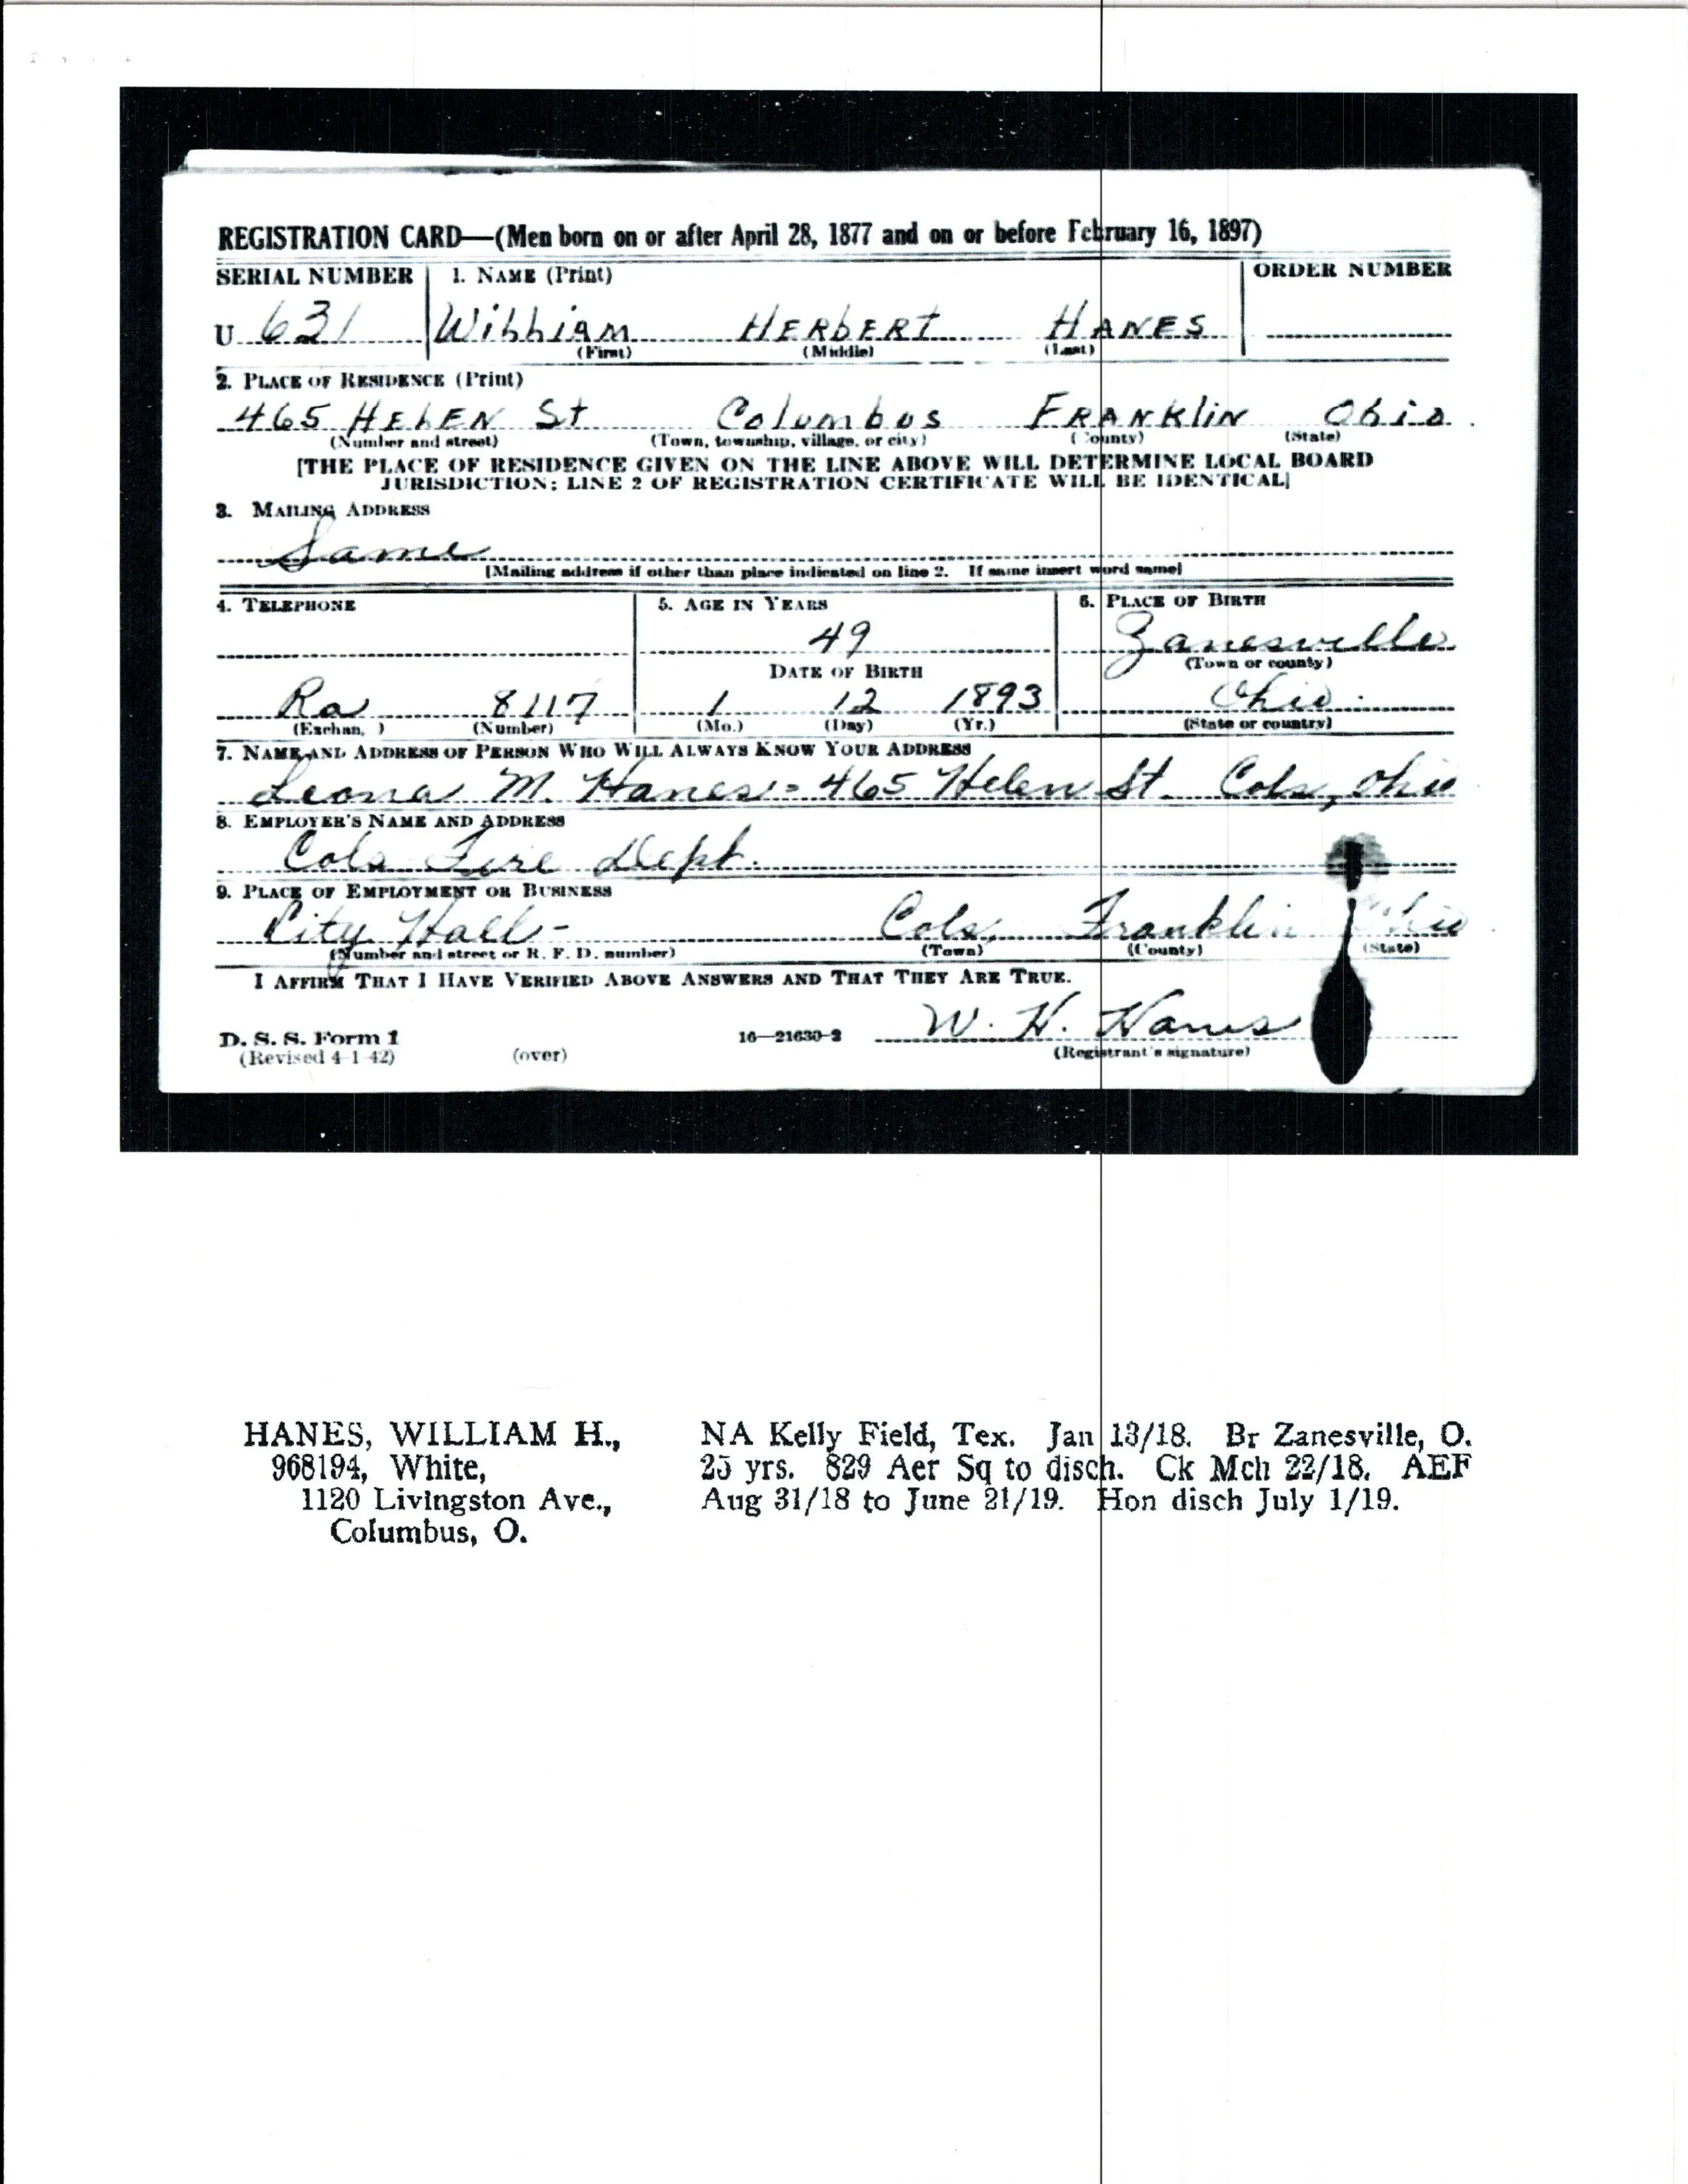 REGISTRATION CARD—(Men born on or after April 28, 1877 and on or before February 16, 1897)
SERIAL NUMBER 1. NAME (Print) ORDER NUMBER
U 631 William HERBERT HANES
(First) (Middle) (Last)
2. PLACE OF RESIDENCE (Print)
465 HELEN St Columbus FRANKlIN Ohio
(Number and street) (Town, township, village, or city) (County) (State)
[THE PLACE OF RESIDENCE GIVEN ON THE LINE ABOVE WILL DETERMINE LOCAL BOARD
JURISDICTION; LINE 2 OF REGISTRATION CERTIFICATE WILL BE IDENTICAL]
3. MAILING ADDRESS
Same
[Mailing address if other than place indicated on line 2. If same insert word same]
4. TELEPHONE 5. AGE IN YEARS 6. PLACE OF BIRTH
49 Zanesville
DATE OF BIRTH (Town or county)
Ra 8117 1 12 1893 Ohio
(Exchan. ) (Number) (Mo.) (Day) (Yr.) (State or country)
7. NAME AND ADDRESS OF PERSON WHO WILL ALWAYS KNOW YOUR ADDRESS
Leona M. Hanes = 465 Helen St. Cols, Ohio
8. EMPLOYER'S NAME AND ADDRESS
Cols Fire Dept.
9. PLACE OF EMPLOYMENT OR BUSINESS
City Hall - Cols, Franklin Ohio
(Number and street or R. F. D. number) (Town) (County) (State)
I AFFIRM THAT I HAVE VERIFIED ABOVE ANSWERS AND THAT THEY ARE TRUE.
W. H. Hanes
D. S. S. Form 1 16—21630-2 (Registrant's signature)
(Revised 4-1-42) (over)
HANES, WILLIAM H., NA Kelly Field, Tex. Jan 13/18. Br Zanesville, O.
968194, White, 25 yrs. 829 Aer Sq to disch. Ck Mch 22/18. AEF
1120 Livingston Ave., Aug 31/18 to June 21/19. Hon disch July 1/19.
Columbus, O.